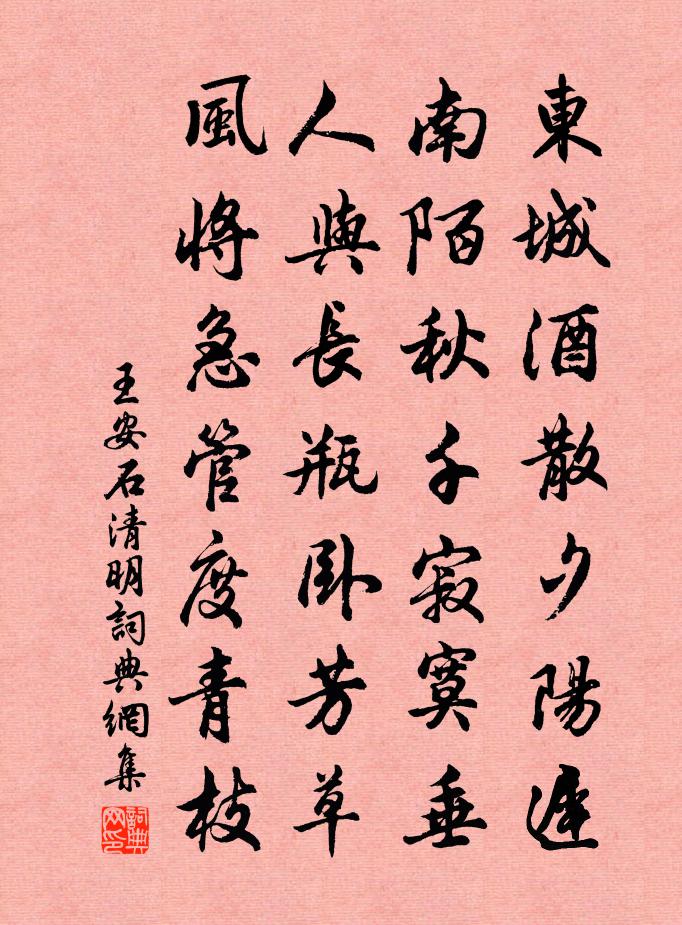 東城酒散夕陽遲
南陌秋千寂寞垂
人與長瓶臥芳草
風將急管度青枝
王安石清明詞典網集
詞典網印